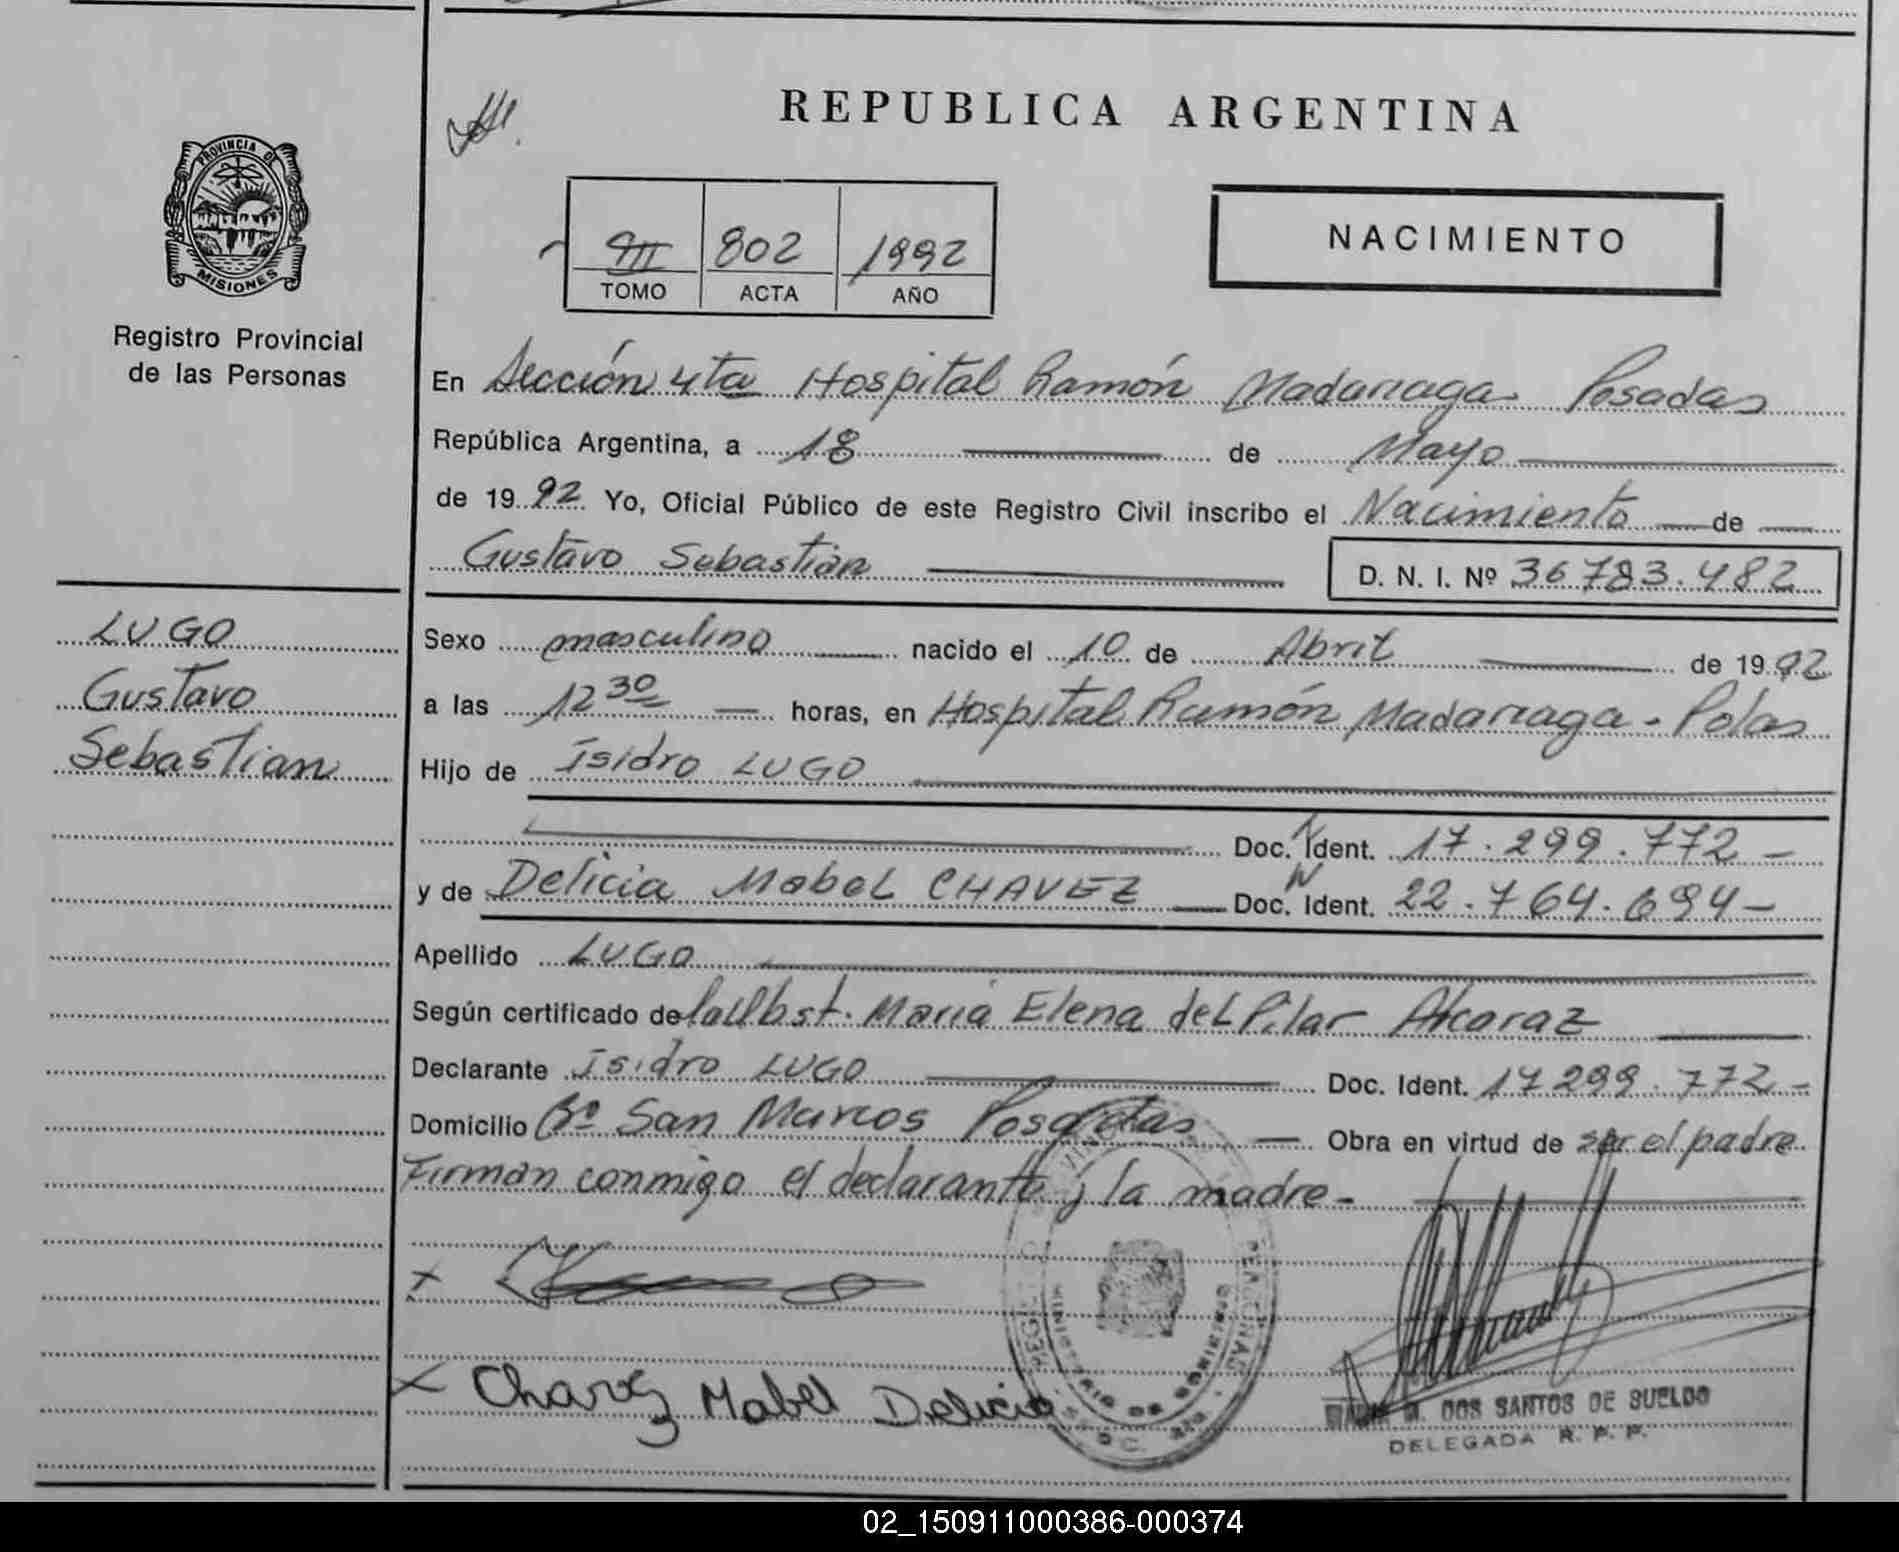 REPUBLICA ARGENTINA
PROVINCIA DE
MISIONES
Registro Provincial
de las Personas
III 802 1992
TOMO ACTA AÑO
NACIMIENTO
En Sección 4ta Hospital Ramón Madariaga Posadas
República Argentina, a 18 de Mayo
de 1992 Yo, Oficial Público de este Registro Civil inscribo el Nacimiento de
Gustavo Sebastian D. N. I. Nº 36.783.482
LUGO
Gustavo
Sebastian
Sexo masculino nacido el 10 de Abril de 1992
a las 12 30 horas, en Hospital Ramón Madariaga - Pdas
Hijo de Isidro LUGO
Doc. N Ident. 17.299.772 -
y de Delicia Mabel CHAVEZ Doc. N Ident. 22.764.694 -
Apellido LUGO
Según certificado de la Obst. Maria Elena del Pilar Alcaraz
Declarante Isidro LUGO Doc. Ident. 17.299.772 -
Domicilio Bº San Marcos Posadas Obra en virtud de ser el padre
Firman conmigo el declarante y la madre -
x
x Chavez Mabel Delicia
MINISTERIO DE GOBIERNO
PERSONAS
M. DOS SANTOS DE SUELDO
DELEGADA R. P. P.
02_150911000386-000374